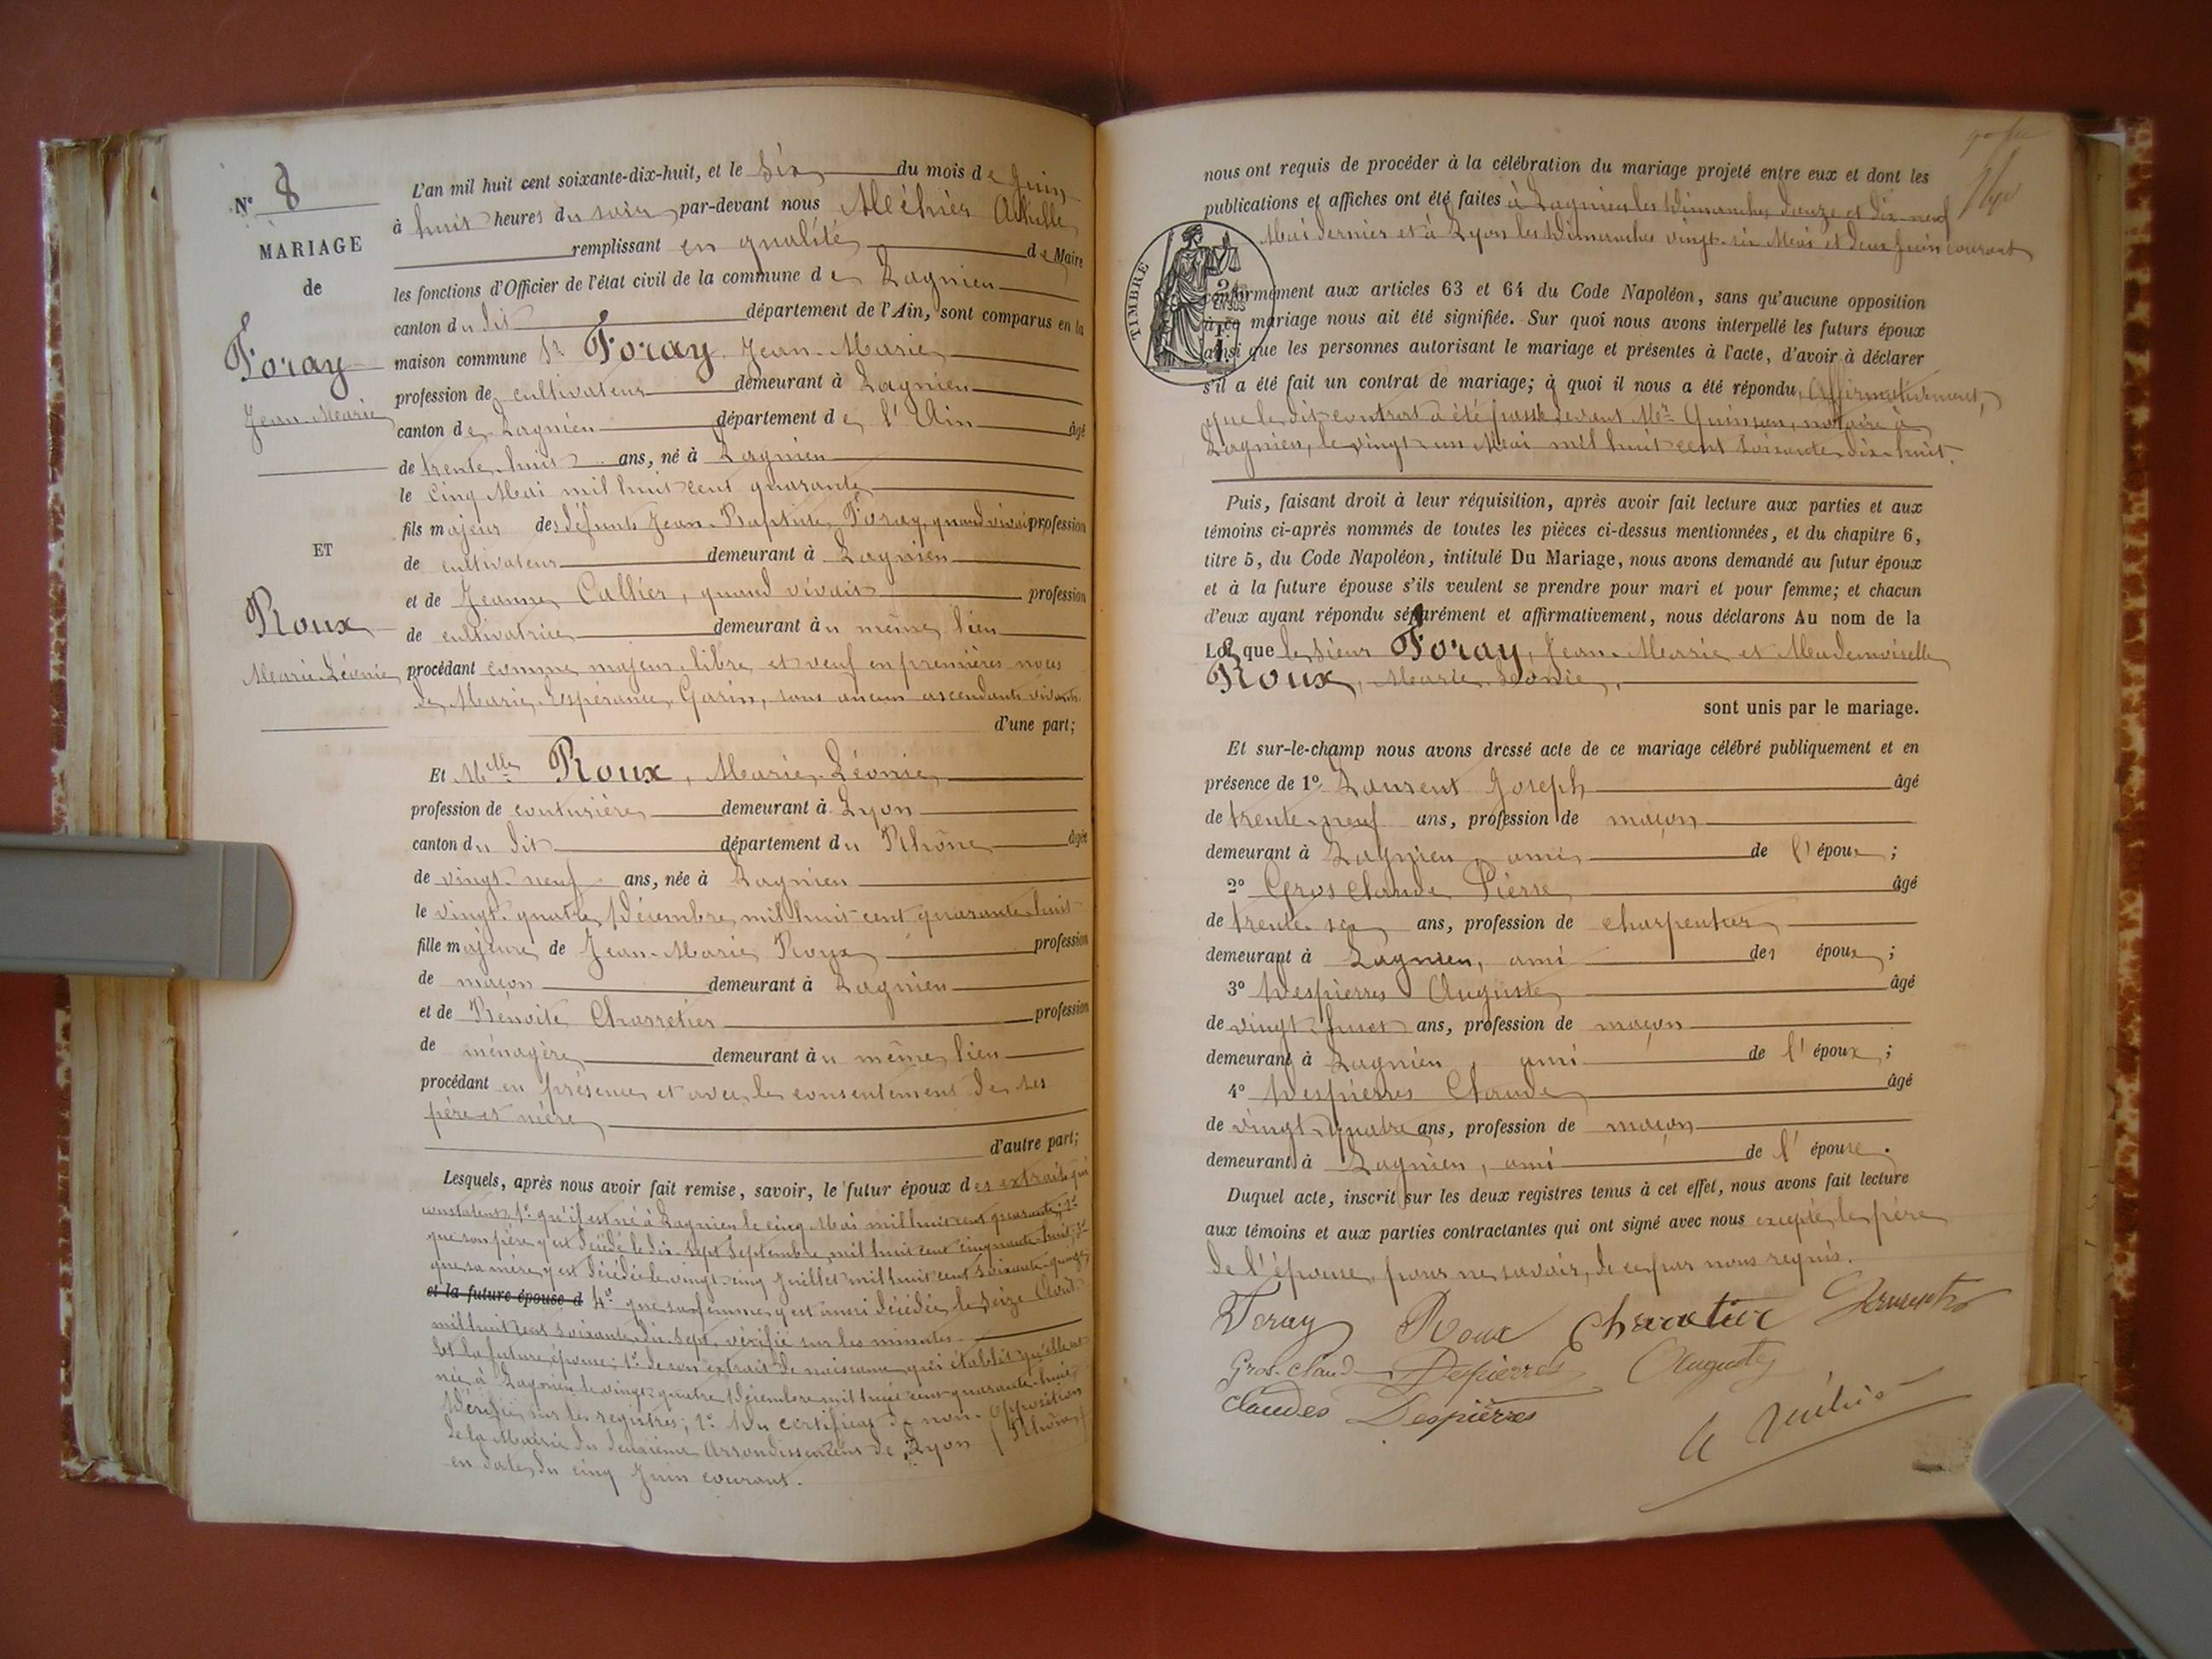 N° 8
MARIAGE
de
Foray
Jean-Marie
ET
Roux
Marie Léonie
L'an mil huit cent soixante-dix-huit, et le six du mois de Juin
à huit heures du soir, par-devant nous Méhier Achille
remplissant en qualité de Maire
les fonctions d'Officier de l'état civil de la commune de Lagnieu
canton du dit département de l'Ain, sont comparus en la
maison commune Sr Foray Jean-Marie
profession de cultivateur demeurant à Lagnieu
canton de Lagnieu département de l'Ain âgé
de trente huit ans, né à Lagnieu
le cinq Mai mil huit cent quarante
fils majeur des défunts Jean-Baptiste Foray, quand vivait profession
de cultivateur demeurant à Lagnieu
et de Jeanne Callier, quand vivait profession
de cultivatrice demeurant au même lieu
procédant comme majeur libre et veuf en premières noces
de Marie Espérance Garin, sans aucun ascendants vivants
d'une part;
Et Melle Roux, Marie Léonie,
profession de couturière demeurant à Lyon
canton du dit département du Rhône âgée
de vingt-neuf ans, née à Lagnieu
le vingt-quatre Décembre mil huit cent quarante-huit
fille majeure de Jean-Marie Roux profession
de maçon demeurant à Lagnieu
et de Benoite Charretier profession
de ménagère demeurant au même lieu
procédant en présence et avec le consentement de ses
père et mère
d'autre part;
Lesquels, après nous avoir fait remise, savoir, le futur époux des extraits qui
constatent, 1° qu'il est né à Lagnieu le cinq Mai mil huit cent quarante; 2°
que son père y est décédé le dix-sept Septembre mil huit cent cinquante-huit; 3°
que sa mère y est décédée le vingt-cinq Juillet mil huit cent soixante-quinze,
et la future épouse d 4° que sa femme y est aussi décédée le seize Août
mil huit cent soixante-dix-sept, vérifié sur les minutes.
Et la future épouse; 1° de son extrait de naissance qui établit qu'elle est
née à Lagnieu le vingt-quatre Décembre mil huit cent quarante-huit,
Vérifié sur les registres; 2° Du certificat de non-opposition
de la Mairie du deuxième Arrondissement de Lyon (Rhône)
en date du cinq Juin courant.
nous ont requis de procéder à la célébration du mariage projeté entre eux et dont les
publications et affiches ont été faites à Lagnieu les Dimanches douze et dix-neuf
Mai dernier et à Lyon les Dimanches vingt-six Mai et deux Juin courant
TIMBRE
conformément aux articles 63 et 64 du Code Napoléon, sans qu'aucune opposition
à ce mariage nous ait été signifiée. Sur quoi nous avons interpellé les futurs époux
ainsi que les personnes autorisant le mariage et présentes à l'acte, d'avoir à déclarer
s'il a été fait un contrat de mariage; à quoi il nous a été répondu, affirmativement,
que le dit contrat a été passé devant Mer Quinson, notaire à
Lagnieu, le vingt-un Mai mil huit cent soixante-dix-huit.
Puis, faisant droit à leur réquisition, après avoir fait lecture aux parties et aux
témoins ci-après nommés de toutes les pièces ci-dessus mentionnées, et du chapitre 6,
titre 5, du Code Napoléon, intitulé Du Mariage, nous avons demandé au futur époux
et à la future épouse s'ils veulent se prendre pour mari et pour femme; et chacun
d'eux ayant répondu séparément et affirmativement, nous déclarons Au nom de la
Loi, que le sieur Foray, Jean-Marie et Mademoiselle
Roux, Marie-Léonie,
sont unis par le mariage.
Et sur-le-champ nous avons dressé acte de ce mariage célébré publiquement et en
présence de 1° Laurent Joseph âgé
de trente-neuf ans, profession de maçon
demeurant à Lagnieu, ami de l'époux;
2° Gros Claude Pierre âgé
de trente six ans, profession de charpentier
demeurant à Lagnieu, ami des époux;
3° Despierres Auguste âgé
de vingt huit ans, profession de maçon
demeurant à Lagnieu, ami de l'époux;
4° Despierres Claude âgé
de vingt quatre ans, profession de maçon
demeurant à Lagnieu, ami de l'épouse.
Duquel acte, inscrit sur les deux registres tenus à cet effet, nous avons fait lecture
aux témoins et aux parties contractantes qui ont signé avec nous excepté le père
de l'épouse, pour ne savoir, de ce par nous requis.
Foray Roux Charatier
Gros-Claud Despierres Auguste
Claudes Despierres